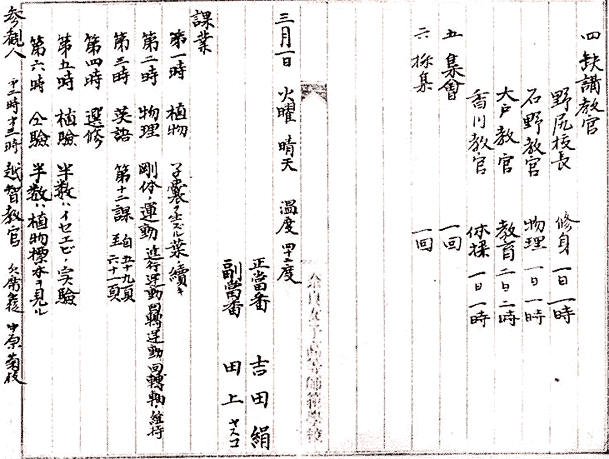 四 缺講教官
野尻校長 修身 一日一時
石野教官 物理 一日一時
大戸教官 教育 二日二時
香川教官 体操 一日一時
五 集會 一回
六 採集 一回
奈良女子高等師範學校
三月一日 火曜 晴天 温度 四十二度
正當番 吉田絹
副當番 田上ヤスコ
課業
第一時 植物 子嚢 葉 續キ
第二時 物理 剛体ノ運動 進行運動 回轉運動 回轉軸ノ維持
第三時 英語 第十二課 自五十九頁 至六十一頁
第四時 選修
第五時 植驗 半数ハイセエビノ実驗
第六時 仝驗 半数ハ植物標本ヲ見ル
参観人 越智教官 欠席者 中原菊枝